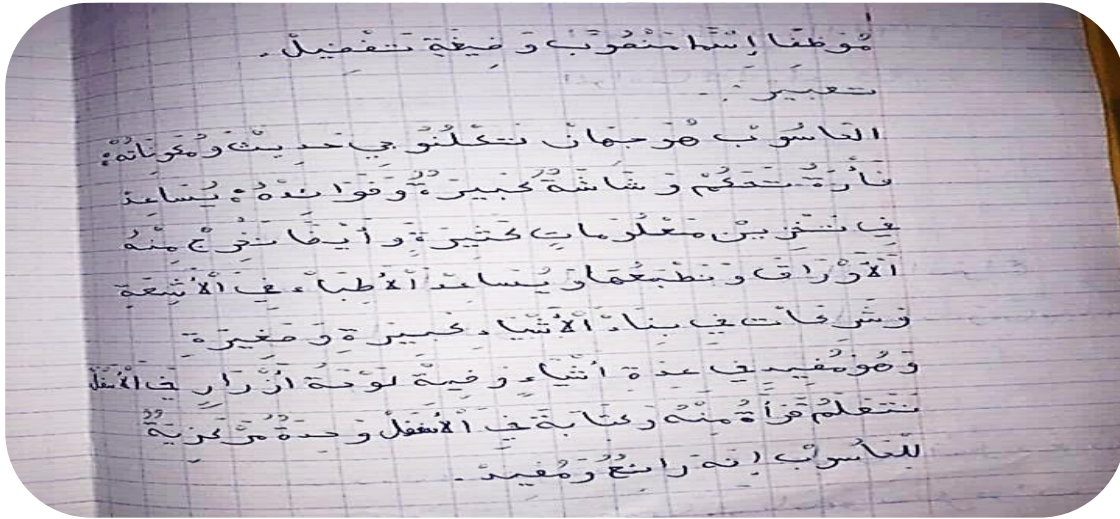 مُوَظِفًا إِسْمًا مَنْصُوبًا وَ صِيغَةِ تَفْضِيلْ.
تعبير:
الحَاسُوبْ هُوَ جِهَازْ تَكْلُنُو جِي حَدِيثْ وَمُكَوِنَاتُهُ:
فَأْرَةُ تَحَكُمْ وَ شَاشَةُ كَبِيرَةُ وَفَوَائِدُهُ: يُسَاعِدُ
فِي تَخْزِينْ مَعْلُومَاتٍ كَثِيرَةٍ وَ أَيْضًا نُخْرِجْ مِنْهُ
اَلْأَوْرَاقْ وَ نَطْبَعُهَا وَ يُسَاعِدُ اَلْأَطِبَاءِ فِي اَلْأَشِعَةِ
وَ شَرِكَاتْ فِي بِنَاءْ اَلْأَشْيَاءِ كَبِيرَةِ وَ صَغِيرَةِ
وَ هُوَ مُفِيد فِي عِدَةِ أَشْيَاءِ وَ فِيهِ لَوْحَةُ أَزْرَارٍ فِي اَلْأَسْفَلْ
نَتَعَلَمُ قِرَأَةُ مِنْهُ وَ كِتَابَةَ فِي اَلْأَسْفَلْ وَحِدَةُ مَرْكَزِيَةُ
لِلْحَاسُوبْ إِنَهُ رَائِعُ وَ مُفِيدْ.